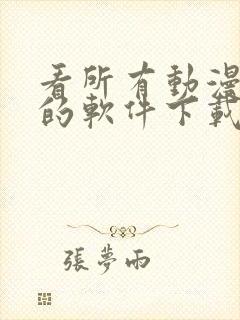 看所有動漫
的軟件下載
張夢雨